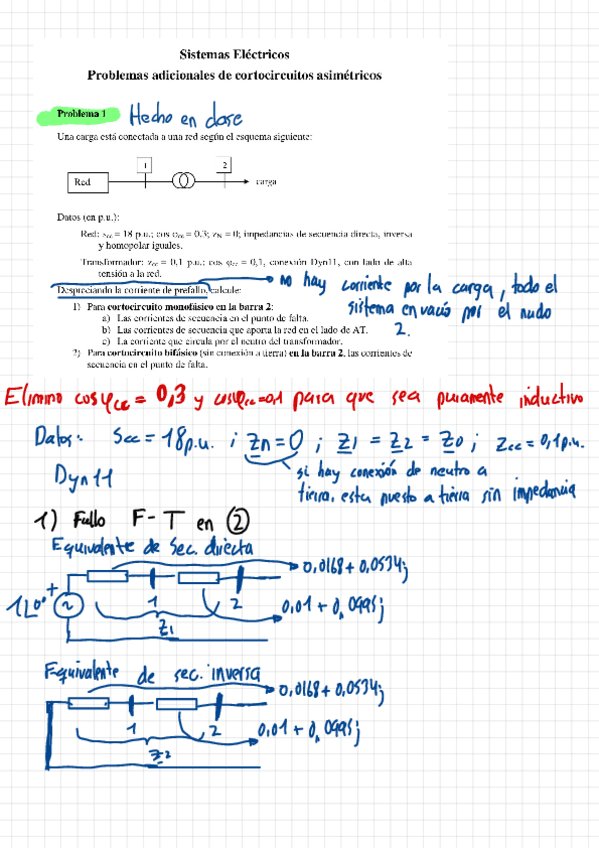 Sistemas Eléctricos
Problemas adicionales de cortocircuitos asimétricos
Problema 1 Hecho en clase
Una carga está conectada a una red según el esquema siguiente:
1 2
Red carga
Datos (en p.u.):
Red: scc = 18 p.u.; cos φcc = 0,3; zN = 0; impedancias de secuencia directa, inversa
y homopolar iguales.
Transformador: zcc = 0,1 p.u.; cos φcc = 0,1, conexión Dyn11, con lado de alta
tensión a la red.
Despreciando la corriente de prefallo, calcule:
no hay corriente por la carga, todo el
sistema en vacío por el nudo
2.
1) Para cortocircuito monofásico en la barra 2:
a) Las corrientes de secuencia en el punto de falta.
b) Las corrientes de secuencia que aporta la red en el lado de AT.
c) La corriente que circula por el neutro del transformador.
2) Para cortocircuito bifásico (sin conexión a tierra) en la barra 2, las corrientes de
secuencia en el punto de falta.
Elimino cosφcc = 0,3 y cosφcc=0,1 para que sea puramente inductivo
Datos: Scc = 18 p.u. ; Zn = 0 ; Z1 = Z2 = Z0 ; Zcc = 0,1 p.u.
Dyn11
si hay conexión de neutro a
tierra, esta puesto a tierra sin impedancia
1) Fallo F-T en 2
Equivalente de Sec. directa
0,0168 + 0,0534j
1∟0° + ~ 1 2 0,01 + 0,0995j
Z1
Equivalente de sec. inversa
0,0168 + 0,0534j
1 2 0,01 + 0,0995j
Z2